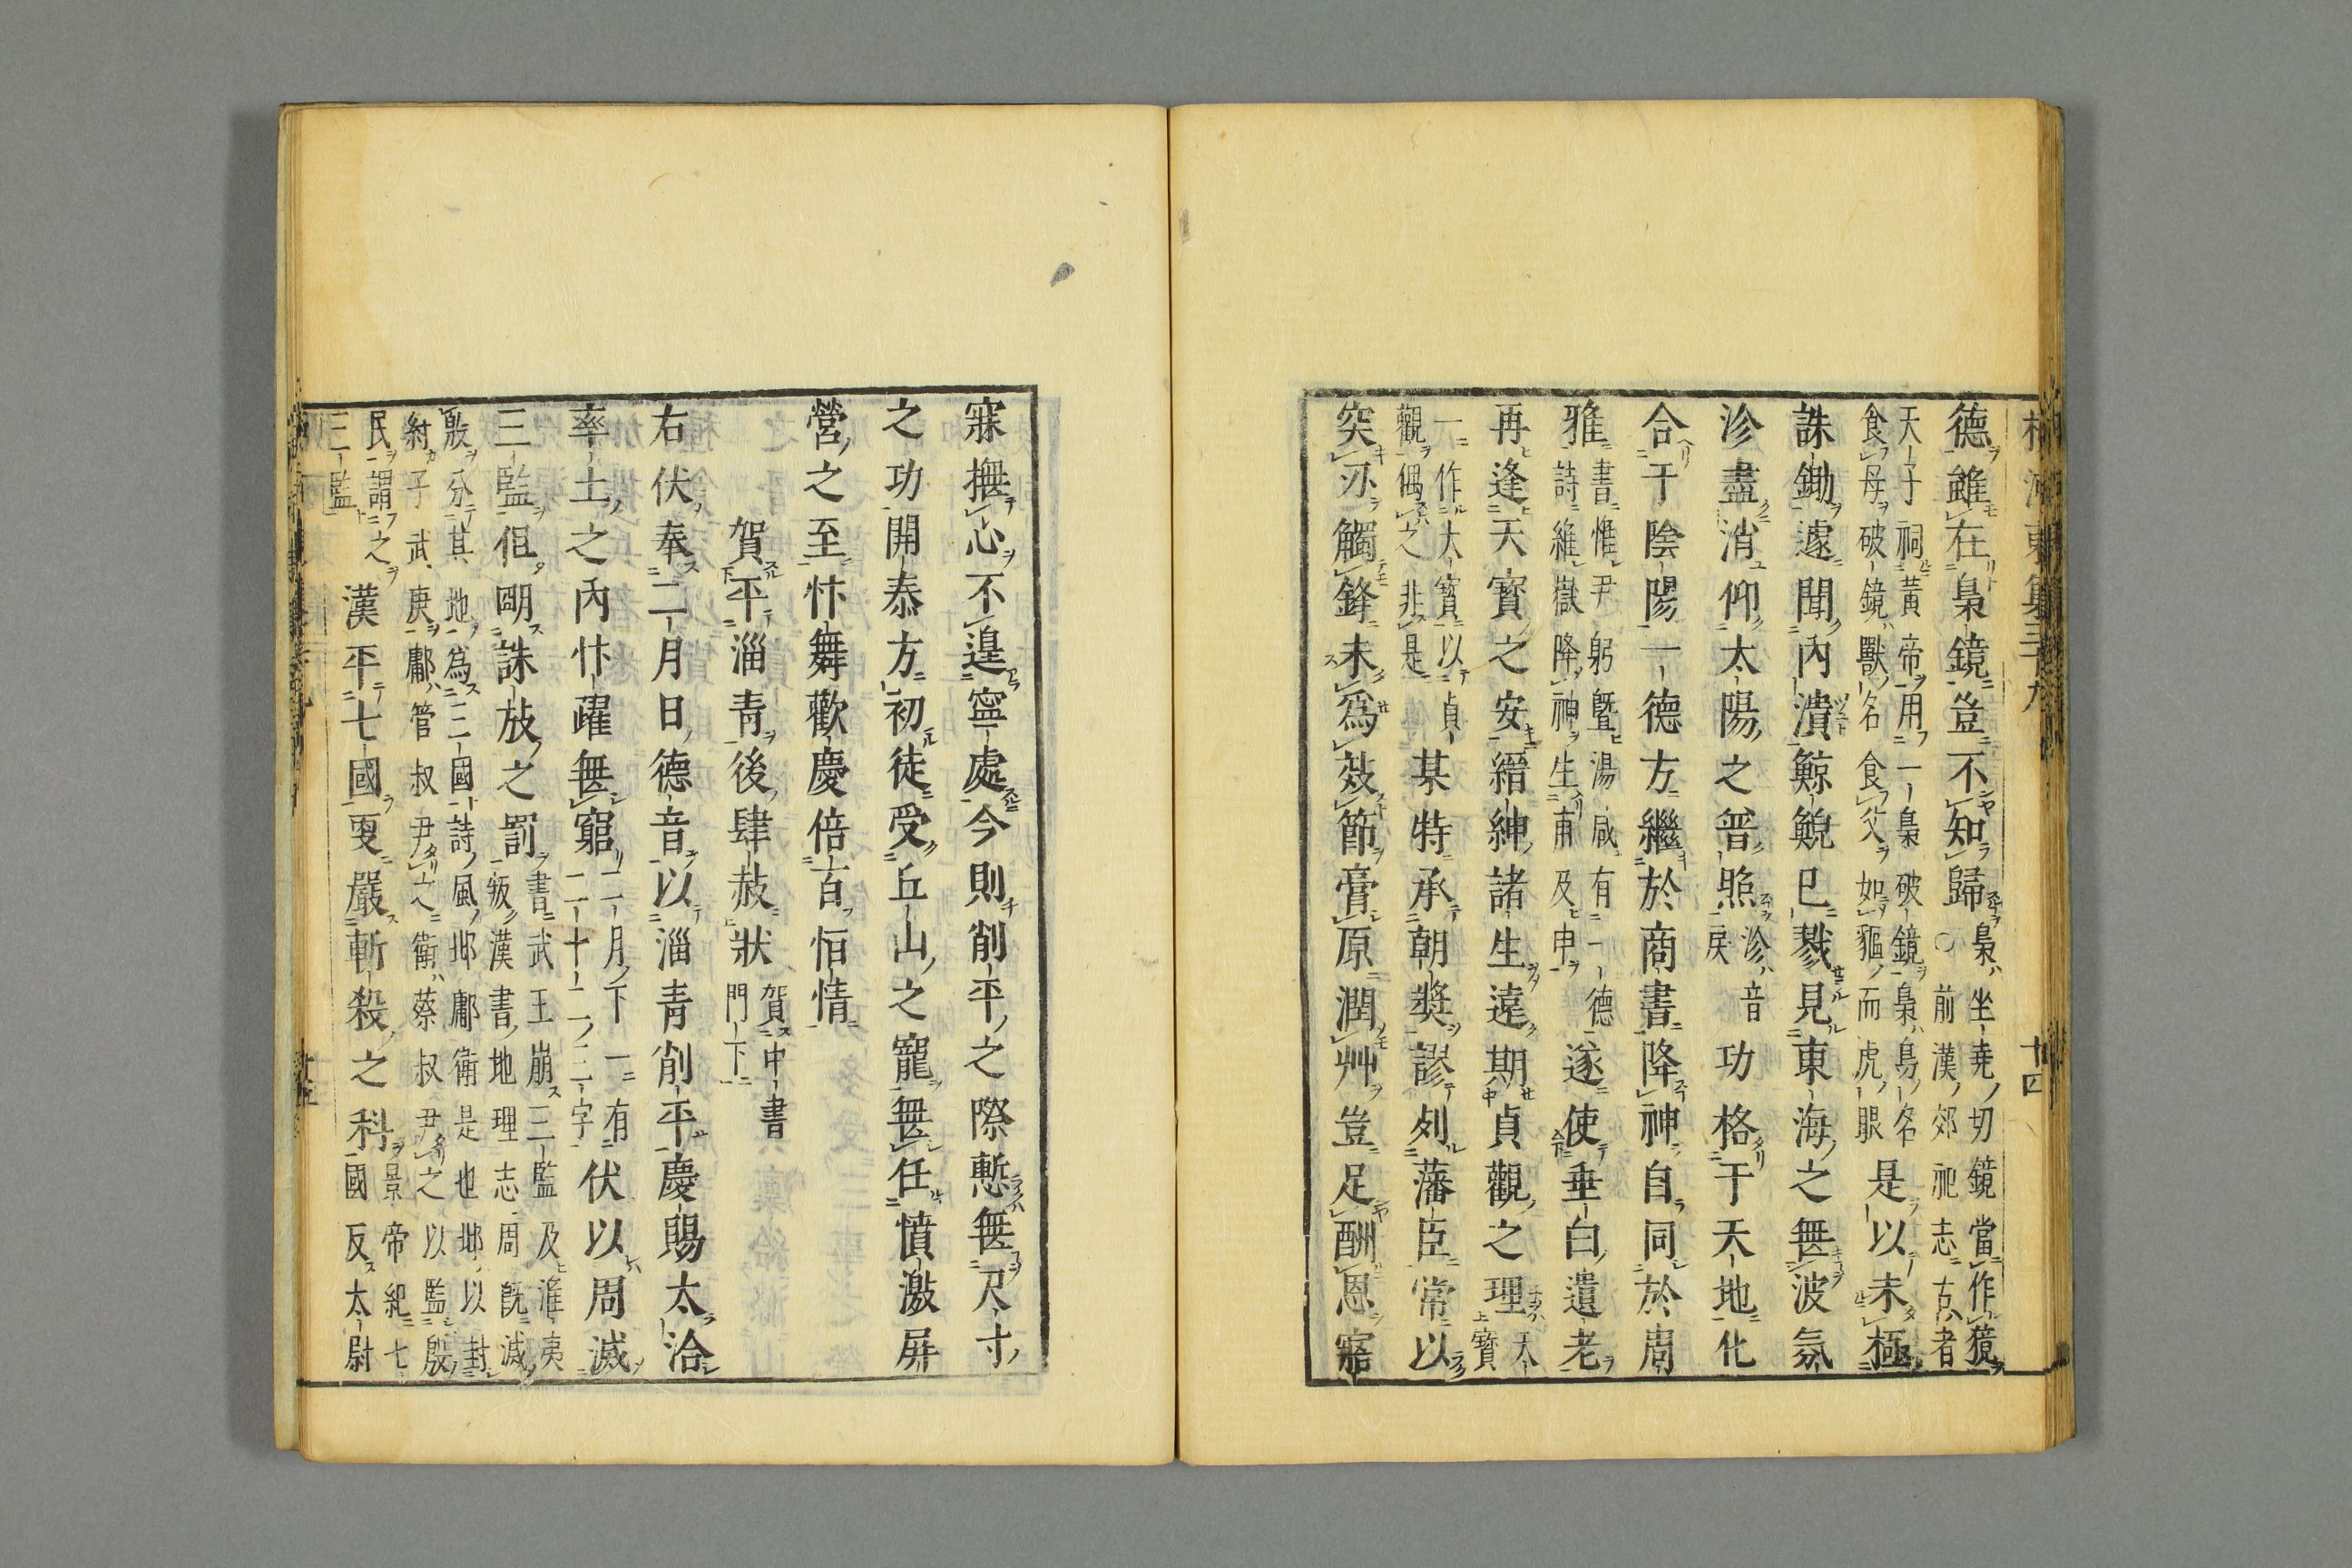 德雖在梟鏡豈不知歸○梟坐堯切鏡當作獍
前漢郊祀志古者
天子祠黃帝用一梟破鏡梟鳥名
食母破鏡獸名食父如貙而虎眼
是以未極
誅鋤遽聞內潰鯨鯢已戮見東海之無波氛
沴盡消仰太陽之普照沴音
戾
功格于天地化
合于陰陽一德方繼於商書降神自同於周
雅書惟尹躬曁湯咸有一德
詩維嶽降神生甫及申
遂使垂白遺老
再逢天寶之安縉紳諸生遠期貞觀之理天
寶
一作大寶以貞
觀偶之非是
某特承朝奬謬列藩臣常以
突刃觸鋒未爲效節膏原潤艸豈足酬恩寤
寐撫心不遑寧處今則削平之際慙無尺寸
之功開泰方初徒受丘山之寵無任憤激屏
營之至忭舞歡慶倍百恒情
賀平淄青後肆赦狀賀中書
門下
右伏奉二月日德音以淄青削平慶賜太洽
率土之內忭躍無窮二月下一有
二十二二字
伏以周滅
三監但明誅放之罰書武王崩三監及淮夷
叛漢書地理志周旣滅
殷分其地爲三國詩風邶鄘衛是也邶以封
紂子武庚鄘管叔尹之衛蔡叔尹之以監殷
民謂之
三監
漢平七國更嚴斬殺之科景帝紀七
國反太尉